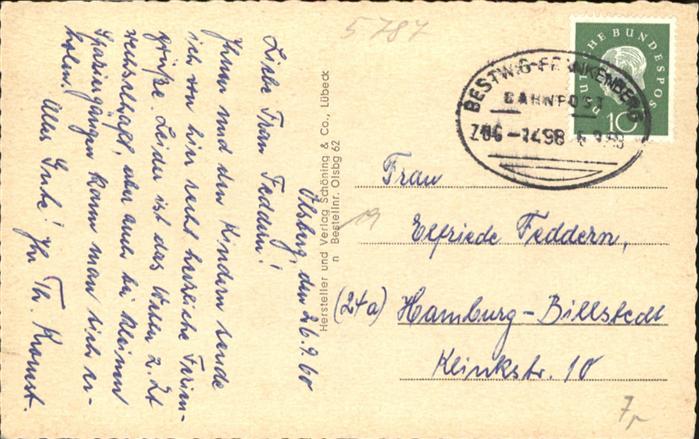 5787
Olsberg, den 26.9.60
Liebe Frau Feddern!
Ihnen und den Kindern sende
ich von hier recht herzliche Ferien-
grüße. Leider ist das Wetter z. Zt
regnerisch, aber auch bei kleinen
Spaziergängen kann man sich er-
holen. Alles Gute! Ihr Th.
Hersteller und Verlag Schöning & Co., Lübeck
n Bestellnr. Olsbg 62
19
DEUTSCHE BUNDESPOST
10
BESTWIG-FRANKENBERG
BAHNPOST
ZUG-1498
Frau
Elfriede Feddern,
(24a) Hamburg-Billstedt
Klinkstr. 10
7,-